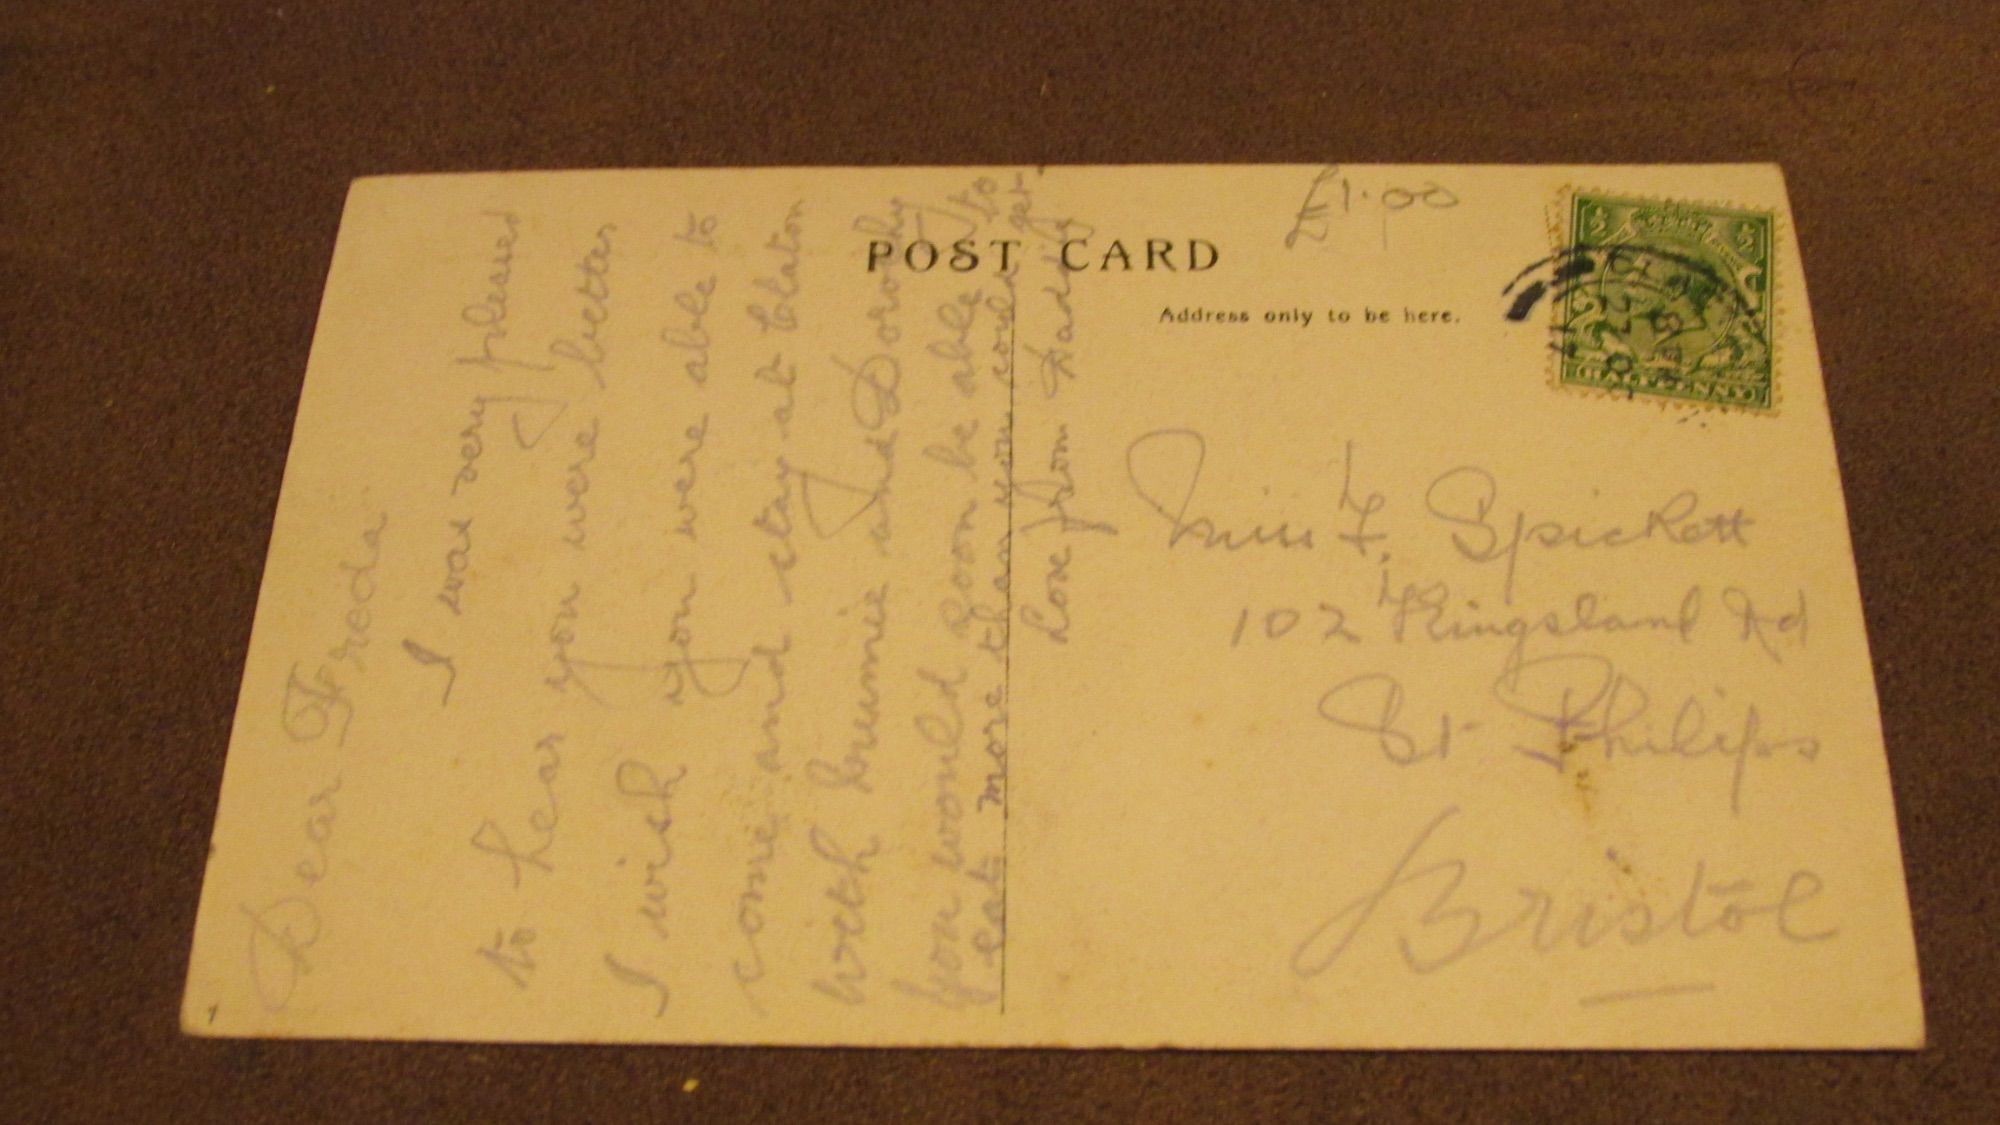 Dear Freda
I was very pleased
to hear you were better
I wish you were able to
come and stay at Claton
with and Dorothy
you would soon be able to
eat more than you could get.
Love from Daddy
POST CARD
Address only to be here.
£1.00
HALFPENNY
Miss F. Spickett
102 Kingsland Rd
St Philips
Bristol